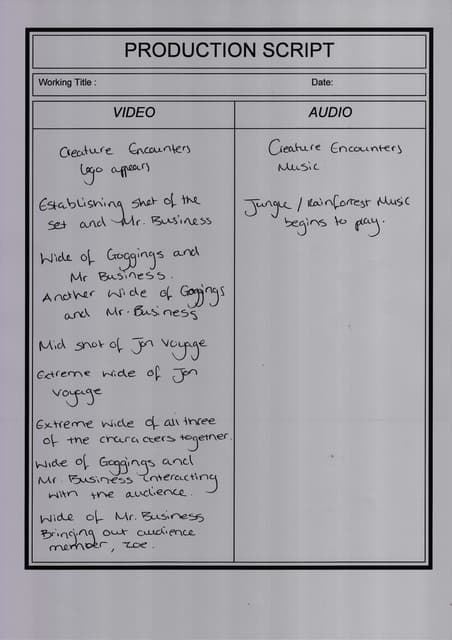 PRODUCTION SCRIPT
Working Title :
Date:
VIDEO
AUDIO
Creature Encounters
logo appears
Establishing shot of the
set and Mr. Business
Wide of Goggings and
Mr Business.
Another wide of Goggings
and Mr. Business
Mid shot of Jon Voyage
Extreme wide of Jon
Voyage
Extreme wide of all three
of the characters together.
Wide of Goggings and
Mr. Business interacting
with the audience.
Wide of Mr. Business
Bringing out audience
member, Zoe.
Creature Encounters
Music
Jungle / Rainforrest Music
begins to play.